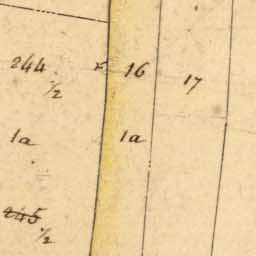 244 x 16 17
1/2
1a 1a
245
1/2